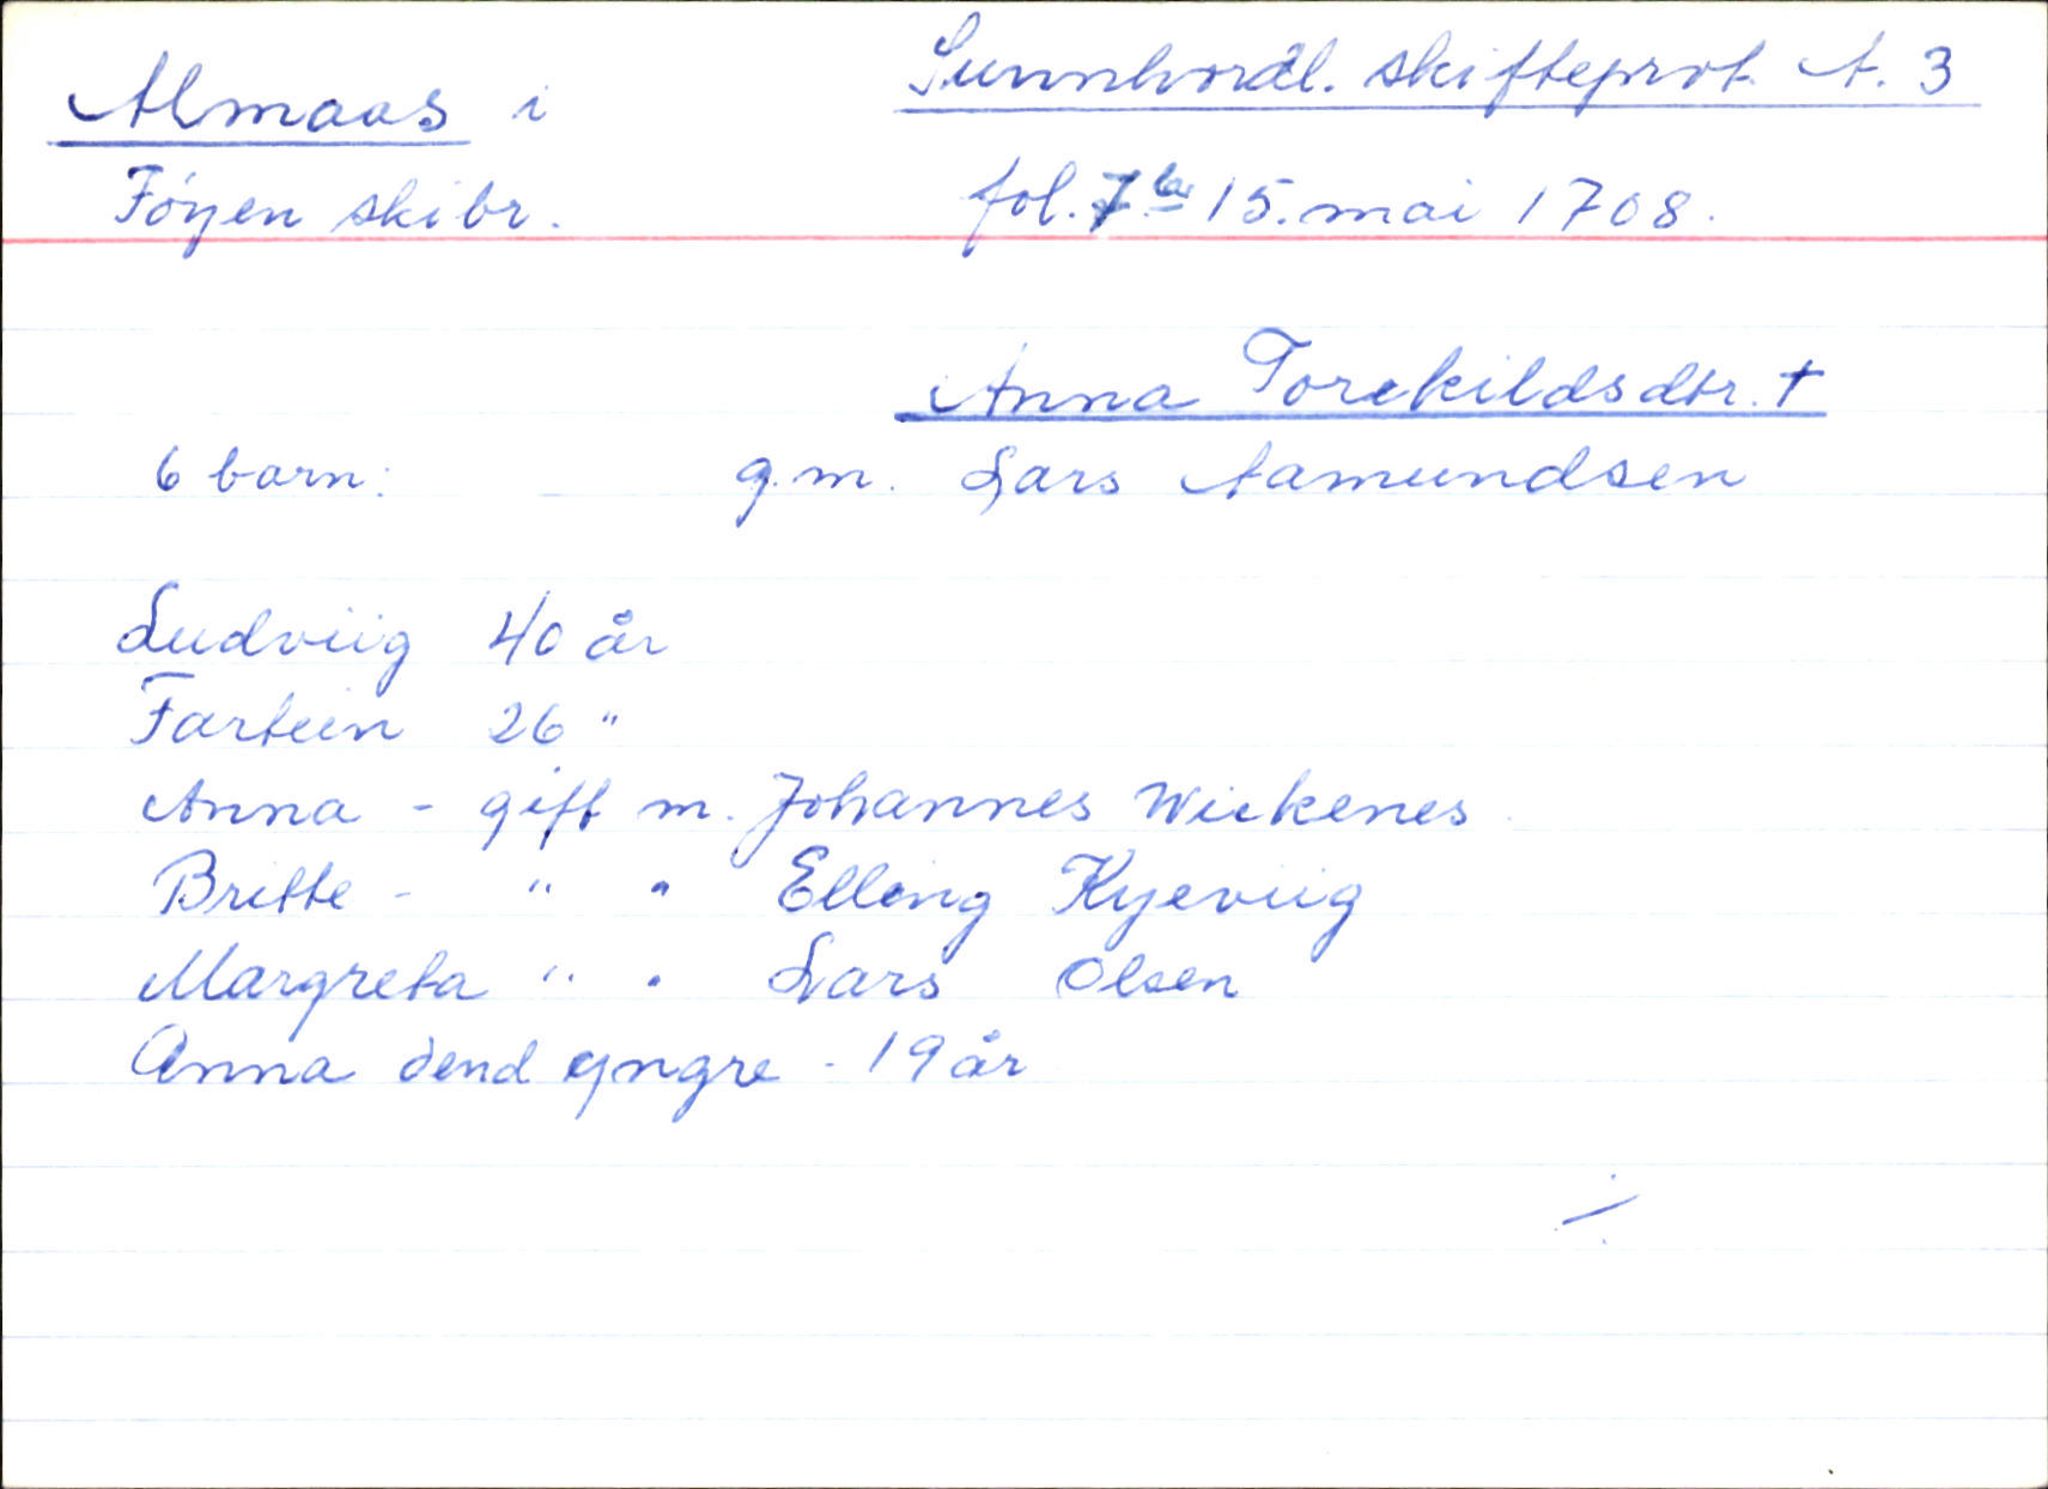 Almaas i
Sunnhordl. skifteprot. A. 3
Föyen skibr.
fol. 7 15. mai 1708.
Anna Torekildsdtr. †
6 barn: g.m. Lars Aamundsen
Ludviig 40 år
Fartein 26 "
Anna - gift m. Johannes Wiekenes
Britte - " " Elling Kyeviig
Margreta " " Lars Olsen
Anna dend yngre - 19 år